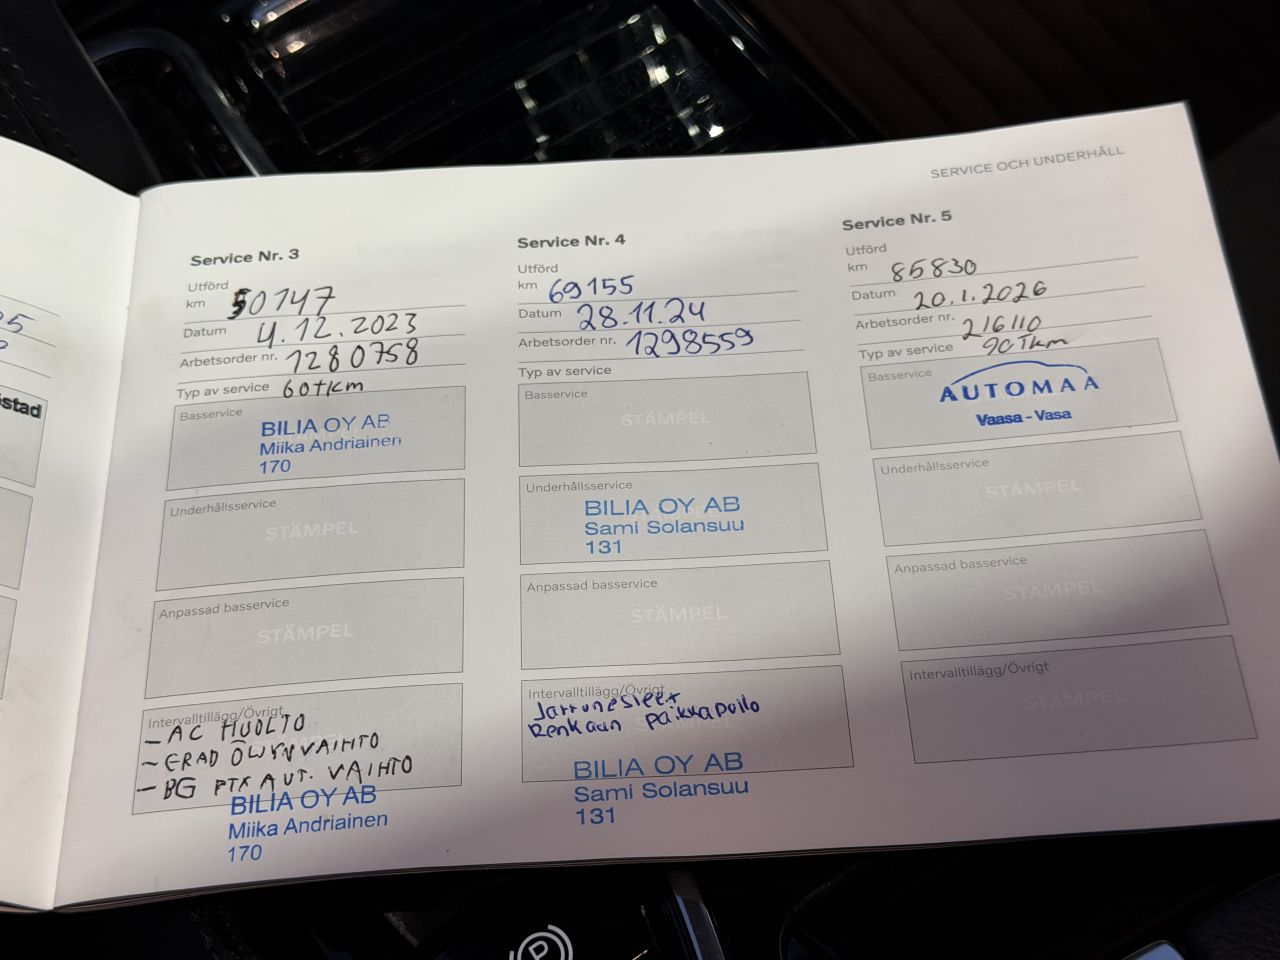 SERVICE OCH UNDERHÅLL
Service Nr. 3
Utförd
km 50147
Datum 4.12.2023
Arbetsorder nr. 1280758
Typ av service 60 TKM
Basservice
BILIA OY AB
Miika Andriainen
170
Underhållsservice
STÄMPEL
Anpassad basservice
STÄMPEL
Intervalltillägg/Övrigt
- AC HUOLTO
- ERAD ÖLJYNVAIHTO
- BG PTK AUT. VAIHTO
BILIA OY AB
Miika Andriainen
170
Service Nr. 4
Utförd
km 69155
Datum 28.11.24
Arbetsorder nr. 1298559
Typ av service
Basservice
STÄMPEL
Underhållsservice
BILIA OY AB
Sami Solansuu
131
Anpassad basservice
STÄMPEL
Intervalltillägg/Övrigt
Jarruneste
Renkaan paikkapullo
BILIA OY AB
Sami Solansuu
131
Service Nr. 5
Utförd
km 85830
Datum 20.1.2026
Arbetsorder nr. 216110
Typ av service 90 Tkm
Basservice
AUTOMAA
Vaasa - Vasa
Underhållsservice
STÄMPEL
Anpassad basservice
STÄMPEL
Intervalltillägg/Övrigt
STÄMPEL